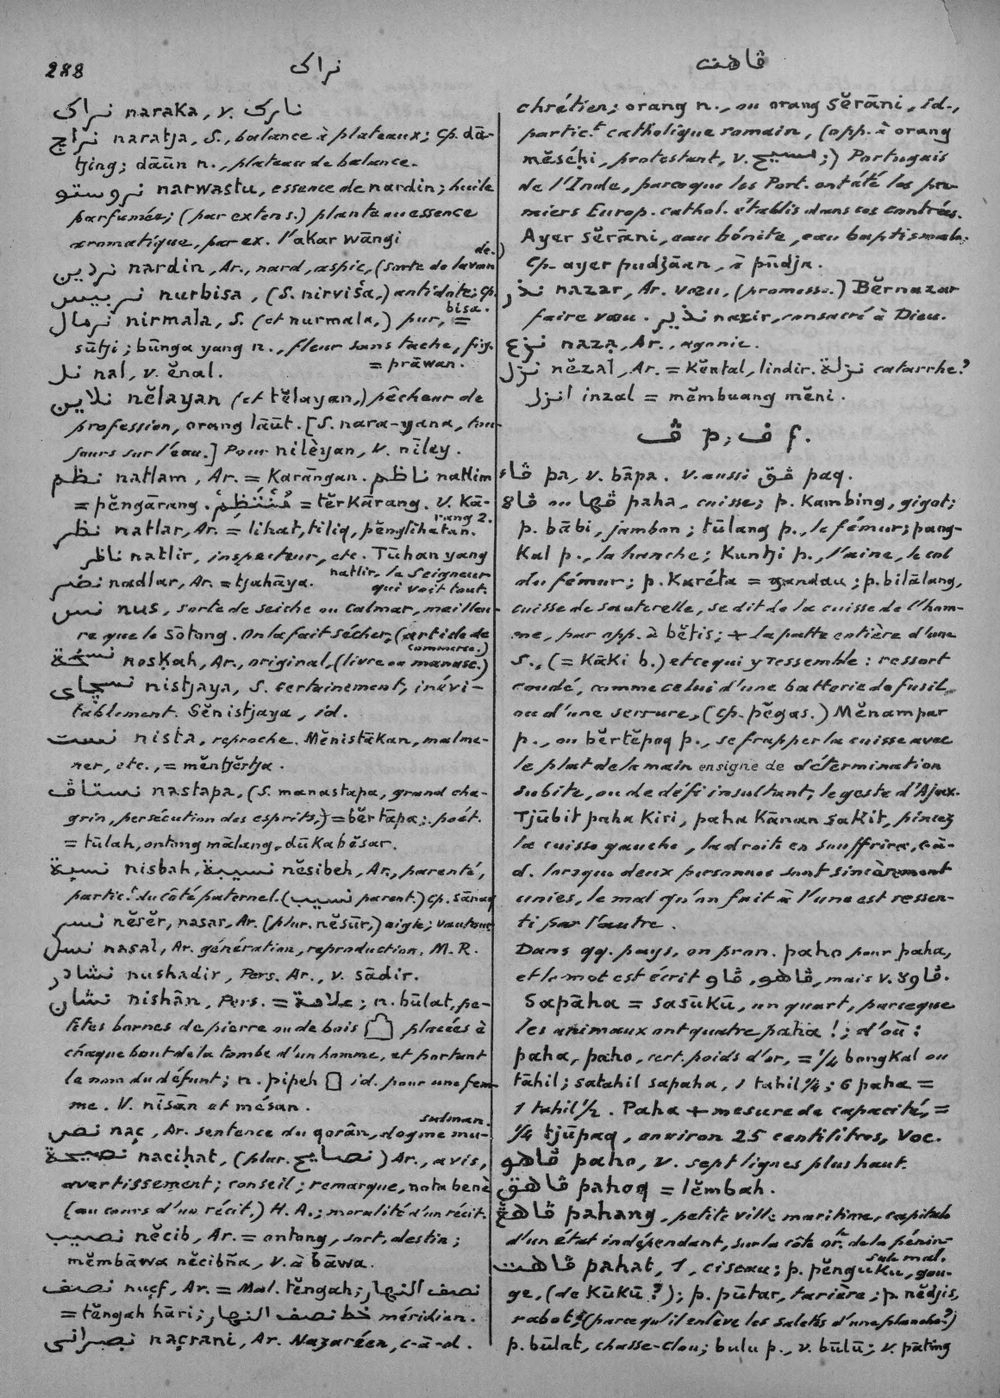 288
نراک
ڤاهت
نراک naraka, v. نارک
نراچ naratja, S., balance à plateaux; cp. dā-
tjing; dāūn n., plateau de balance.
نروستو narwastu, essence de nardin; huile
parfumée; (par extens.) plante ou essence
aromatique, par ex. l'akar wāngi
نردين nardin, Ar., nard, aspic, (sorte de lavande.)
نربيس nurbisa, (S. nirviśa,) antidote; cp. bisa.
نرمال nirmala, S. (et nurmala,) pur, =
sūtji; būnga yang n., fleur sans tache, fig. = prāwan.
نل nal, v. ĕnal.
نلاين nĕlayan (et tĕlayan,) pêcheur de
profession, orang lāūt. [S. nara-yana, tou-
jours sur l'eau.] Pour nilèyan, v. nīley.
نظم natlam, Ar. = Karāngan. ناظم natlim
= pĕngārang. = tĕrkārang. v. Kā-
rang 2.
نظر natlar, Ar. = lihat, tiliq, pĕnglihatan.
ناظر natlir, inspecteur, etc. Tūhan yang
natlir, le Seigneur qui voit tout.
نضر nadlar, Ar. = tjahāya.
نس nus, sorte de seiche ou calmar, meilleu-
re que le sōtong. On la fait sécher, (article de commerce.)
نسخة noskah, Ar., original, (livre ou manusc.)
نسچاى nistjaya, S. certainement, inévi-
tablement. Sĕnistjaya, id.
نست nista, reproche. Mĕnistākan, malme-
ner, etc., = mĕntjĕrtja.
نستاڤ nastapa, (S. manastapa, grand cha-
grin, persécution des esprits,) = bĕrtāpa; poét.
= tūlah, ontong mālang, dūka bĕsar.
نسبة nisbah, نسيبة nĕsibeh, Ar., parenté,
partic.t du côté paternel. (نسيب parent.) cp. sānaq
نسر nĕsĕr, nasar, Ar. (plur. nĕsūr,) aigle; vautour
نسل nasal, Ar. génération, reproduction, M.R.
نشادر nushadir, Pers. Ar., v. sādir.
نشان nishân, Pers. = علامة; n. būlat, pe-
tites bornes de pierre ou de bois placées à
chaque bout de la tombe d'un homme, et portant
le nom du défunt; n. pipeh id. pour une fem-
me. V. nīsān et mésan.
نص naç, Ar. sentence du qorân, dogme mu-
sulman.
نصيحة nacihat, (plur. نصايح) Ar., avis,
avertissement; conseil; remarque, nota benè
(au cours d'un récit.) H.A.; moralité d'un récit.
نصيب nĕcib, Ar. = ontong, sort, destin;
mĕmbāwa nĕcibña, v. à bāwa.
نصف nuçf, Ar. = Mal. tĕngah; نصف النهار
= tĕngah hāri; خط نصف النهار méridien.
نصرانى naçrani, Ar. Nazaréen, c-à-d.
chrétien; orang n., ou orang sĕrāni, id.,
partic.t catholique romain, (opp. à orang
mĕséhi, protestant, v. مسيح;) Portugais
de l'Inde, parce que les Port. ont été les pre-
miers Europ. cathol. établis dans ces contrées.
Ayer sĕrāni, eau bénite, eau baptismale.
Cp. ayer pudjāan, à pūdja.
نذر nazar, Ar. vœu, (promesse.) Bĕrnazar
faire vœu. نذير nazir, consacré à Dieu.
نزع naza, Ar., agonie.
نزل nĕzal, Ar. = Kĕntal, lindir. نزلة catarrhe?
انزل inzal = mĕmbuang mĕni.
ڤ p; ف f.
ڤاء pa, v. bāpa. v. aussi ڤق paq.
ڤاه ou ڤها paha, cuisse; p. Kambing, gigot;
p. bābi, jambon; tūlang p., le fémur; pang-
kal p., la hanche; Kuntji p., l'aine, le col
du fémur; p. Karéta = gandau; p. bilālang,
cuisse de sauterelle, se dit de la cuisse de l'hom-
me, par opp. à bĕtis; + la patte entière d'une
S., (= Kāki b.) et ce qui y ressemble: ressort
coudé, comme celui d'une batterie de fusil,
ou d'une serrure, (cp. pĕgas.) Mĕnampar
p., ou bĕrtĕpoq p., se frapper la cuisse avec
le plat de la main en signe de détermination
subite, ou de défi insultant; le geste d'Ajax.
Tjūbit paha Kiri, paha Kānan sakit, pincez
la cuisse gauche, la droite en souffrira, c-à-
d. lorsque deux personnes sont sincèrement
unies, le mal qu'on fait à l'une est ressen-
ti par l'autre.
Dans qq. pays, on pron. paho pour paha,
et le mot est écrit ڤاهو, ڤاو, mais v. ڤاوه.
Sapāha = sasūkū, un quart, parce que
les animaux ont quatre paha!; d'où:
paha, paho, cert. poids d'or, = 1/4 bongkal ou
tāhil; satahil sapaha, 1 tahil 1/4; 6 paha =
1 tahil 1/2. Paha + mesure de capacité, =
1/4 tjūpaq, environ 25 centilitres, Voc.
ڤاهو paho, v. sept lignes plus haut.
ڤاهق pahoq = lĕmbah.
ڤاهڠ pahang, petite ville maritime, capitale
d'un état indépendant, sur la côte or.le de la pénin-
sule mal.
ڤاهت pahat, 1, ciseau; p. pĕnguku, gou-
ge, (de Kūkū?); p. pūtar, tarière; p. nĕdjis,
rabot? (parce qu'il enlève les saletés d'une planche?)
p. būlat, chasse-clou; bulu p., v. būlū; v. pāting